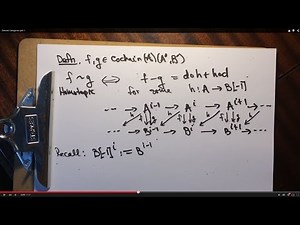 Defn. f,g ∈ Cochain(A)(A•,B•)
f ~ g ⟺ f-g = d∘h + h∘d
Homotopic for some h: A → B[-1]
··· → A^{i-1} → A^i → A^{i+1} → ···
··· → B^{i-1} → B^i → B^{i+1} → ···
Recall: B[-1]^i := B^{i-1}